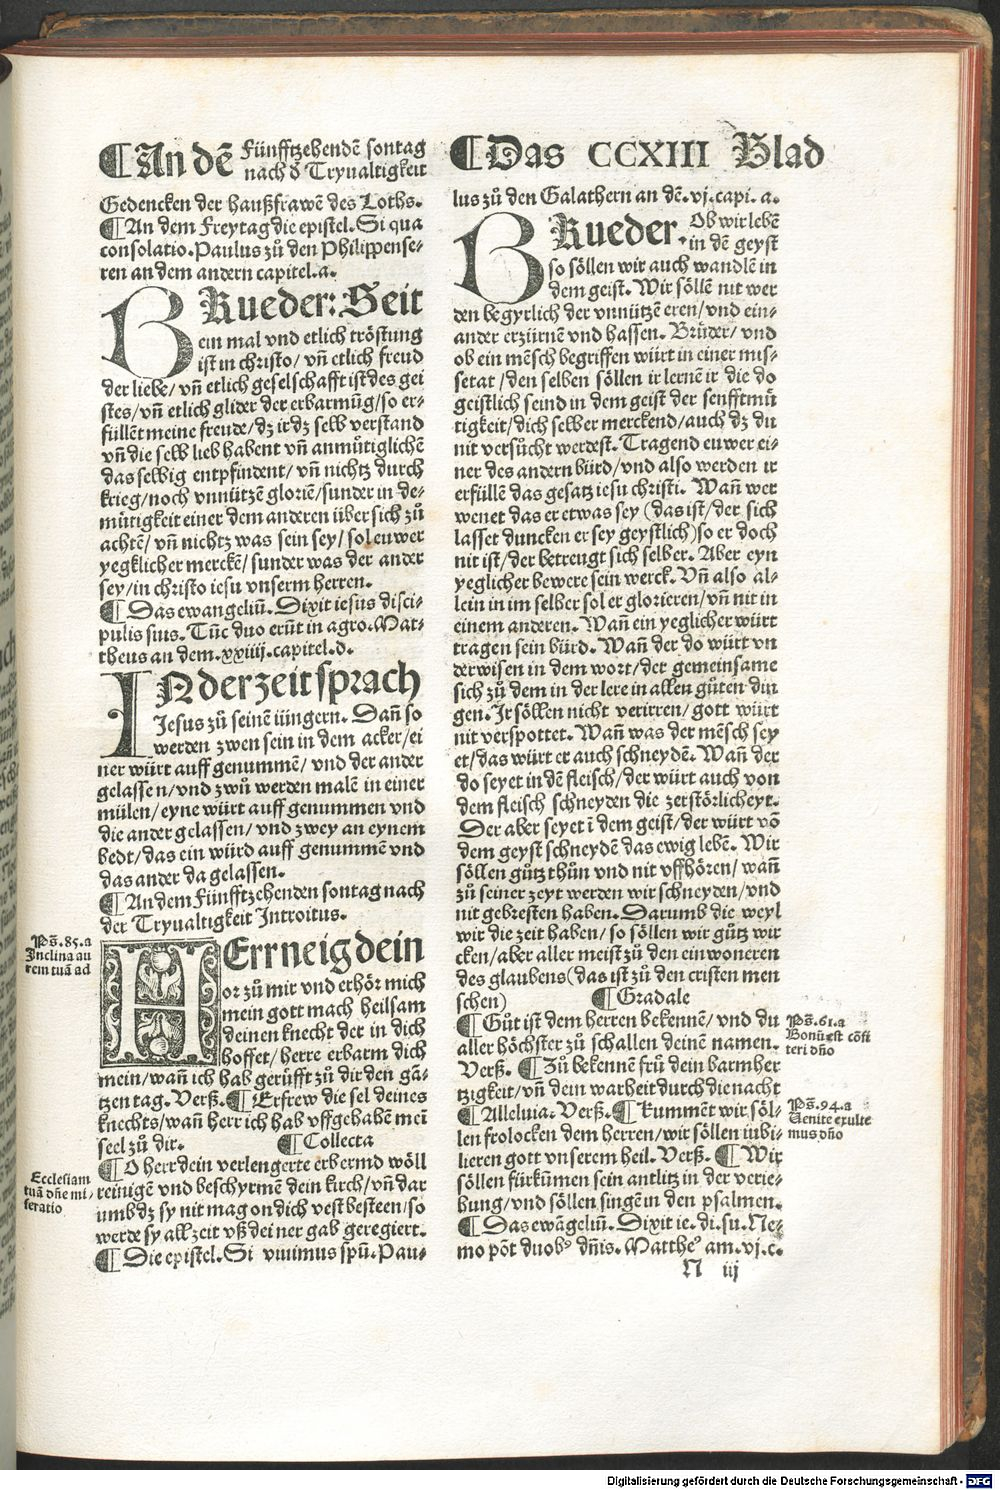 ¶An dē Fünfftzehendē sontag
nach ď Tryualtigkeit
Gedencken der haußfrawē des Loths.
¶An dem Freytag die epistel. Si qua
consolatio. Paulus zů den Philippense-
ren an dem andern capitel.a.
BRueder: Seit
ein mal vnd etlich tröstung
ist in christo/ vñ etlich freud
der liebe/ vñ etlich geselschafft ist des gei
stes/ vñ etlich glider der erbarmūg/ so er-
füllēt meine freude/ dz ir dz selb verstand
vñ die selb lieb habent vñ anmůtiglichē
das selbig entpfindent/ vñ nichtz durch
krieg/ noch vnnützē gloriē/ sunder in de-
můtigkeit einer dem anderen über sich zů
achtē/ vñ nichtz was sein sey/ sol euwer
yegklicher merckē/ sunder was der ander
sey/ in christo iesu vnserm herren.
¶Das ewangeliū. Dixit iesus disci-
pulis suis. Tūc duo erūt in agro. Mat-
theus an dem. xxiiij. capitel.d.
IN der zeit sprach
Jesus zů seinē iüngern. Dañ so
werden zwen sein in dem acker/ ei
ner würt auff genummē/ vnd der ander
gelassen/ vnd zwů werden malē in einer
mülen/ eyne würt auff genummen vnd
die ander gelassen/ vnd zwey an eynem
bedt/ das ein würd auff genummē vnd
das ander da gelassen.
¶An dem Fünfftzehenden sontag nach
der Tryualtigkeit Introitus.
Ps̄.85.a
Inclina au
rem tuā ad
HErr neig dein
or zů mir vnd erhör mich
mein gott mach heilsam
deinen knecht der in dich
hoffet/ herre erbarm dich
mein/ wañ ich hab gerüfft zů dir den gā-
tzen tag. Verß. ¶Erfrew die sel deines
knechts/ wañ herr ich hab vffgehabē mei
seel zů dir. ¶Collecta
Ecclesiam
tuā dn̄e mi-
seratio
¶O herr dein verlengerte erbermd wöll
reinigē vnd beschyrmē dein kirch/ vñ dar
umb dz sy nit mag on dich vest besteen/ so
werde sy all zeit vß deiner gab geregiert.
¶Die epistel. Si viuimus spū. Pau-
¶Das CCXIII Blad
lus zů den Galathern an dē. vj. capi. a.
BRueder. Ob wir lebē
in dē geyst
so söllen wir auch wandlē in
dem geist. Wir söllē nit wer
den begyrlich der vnnützē eren/ vnd ein-
ander erzürnē vnd hassen. Brüder/ vnd
ob ein mēsch begriffen würt in einer mis-
setat/ den selben söllen ir lernē ir die do
geistlich seind in dem geist der senfftmů
tigkeit/ dich selber merckend/ auch dz du
nit versůcht werdest. Tragend euwer ei-
ner des andern bürd/ vnd also werden ir
erfüllē das gesatz iesu christi. Wañ wer
wenet das er etwas sey (das ist/ der sich
lasset duncken er sey geystlich) so er doch
nit ist/ der betreugt sich selber. Aber eyn
yeglicher bewere sein werck. Vñ also al-
lein in im selber sol er glorieren/ vñ nit in
einem anderen. Wañ ein yeglicher würt
tragen sein bürd. Wañ der do würt vn
derwisen in dem wort/ der gemeinsame
sich zů dem in der lere in allen gůten din
gen. Ir söllen nicht verirren/ gott würt
nit verspottet. Wañ was der mēsch sey
et/ das würt er auch schneydē. Wañ der
do seyet in dē fleisch/ der würt auch von
dem fleisch schneyden die zerstörlicheyt.
Der aber seyet ī dem geist/ der würt vō
dem geyst schneydē das ewig lebē. Wir
söllen gůtz thůn vnd nit vffhören/ wañ
zů seiner zeyt werden wir schneyden/ vnd
nit gebresten haben. Darumb die weyl
wir die zeit haben/ so söllen wir gůtz wir
cken/ aber aller meist zů den einwoneren
des glaubens (das ist zů den cristen men
schen) ¶Gradale
Ps̄.61.a
Bonū est cōfi
teri dn̄o
¶Gůt ist dem herren bekennē/ vnd du
aller höchster zů schallen deinē namen.
Verß. ¶Zů bekennē frů dein barmher
tzigkeit/ vñ dein warheit durch die nacht
Ps̄.94.a
Uenite exulte
mus dn̄o
¶Alleluia. Verß. ¶Kummēt wir söl-
len frolocken dem herren/ wir söllen iubi-
lieren gott vnserem heil. Verß. ¶Wir
söllen fürkūmen sein antlitz in der verie-
hung/ vnd söllen singē in den psalmen.
¶Das ewāgeliū. Dixit ie. di. su. Ne-
mo pōt duobꝰ dn̄is. Mattheꝰ am. vj. c.
N iij
Digitalisierung gefördert durch die Deutsche Forschungsgemeinschaft - DFG